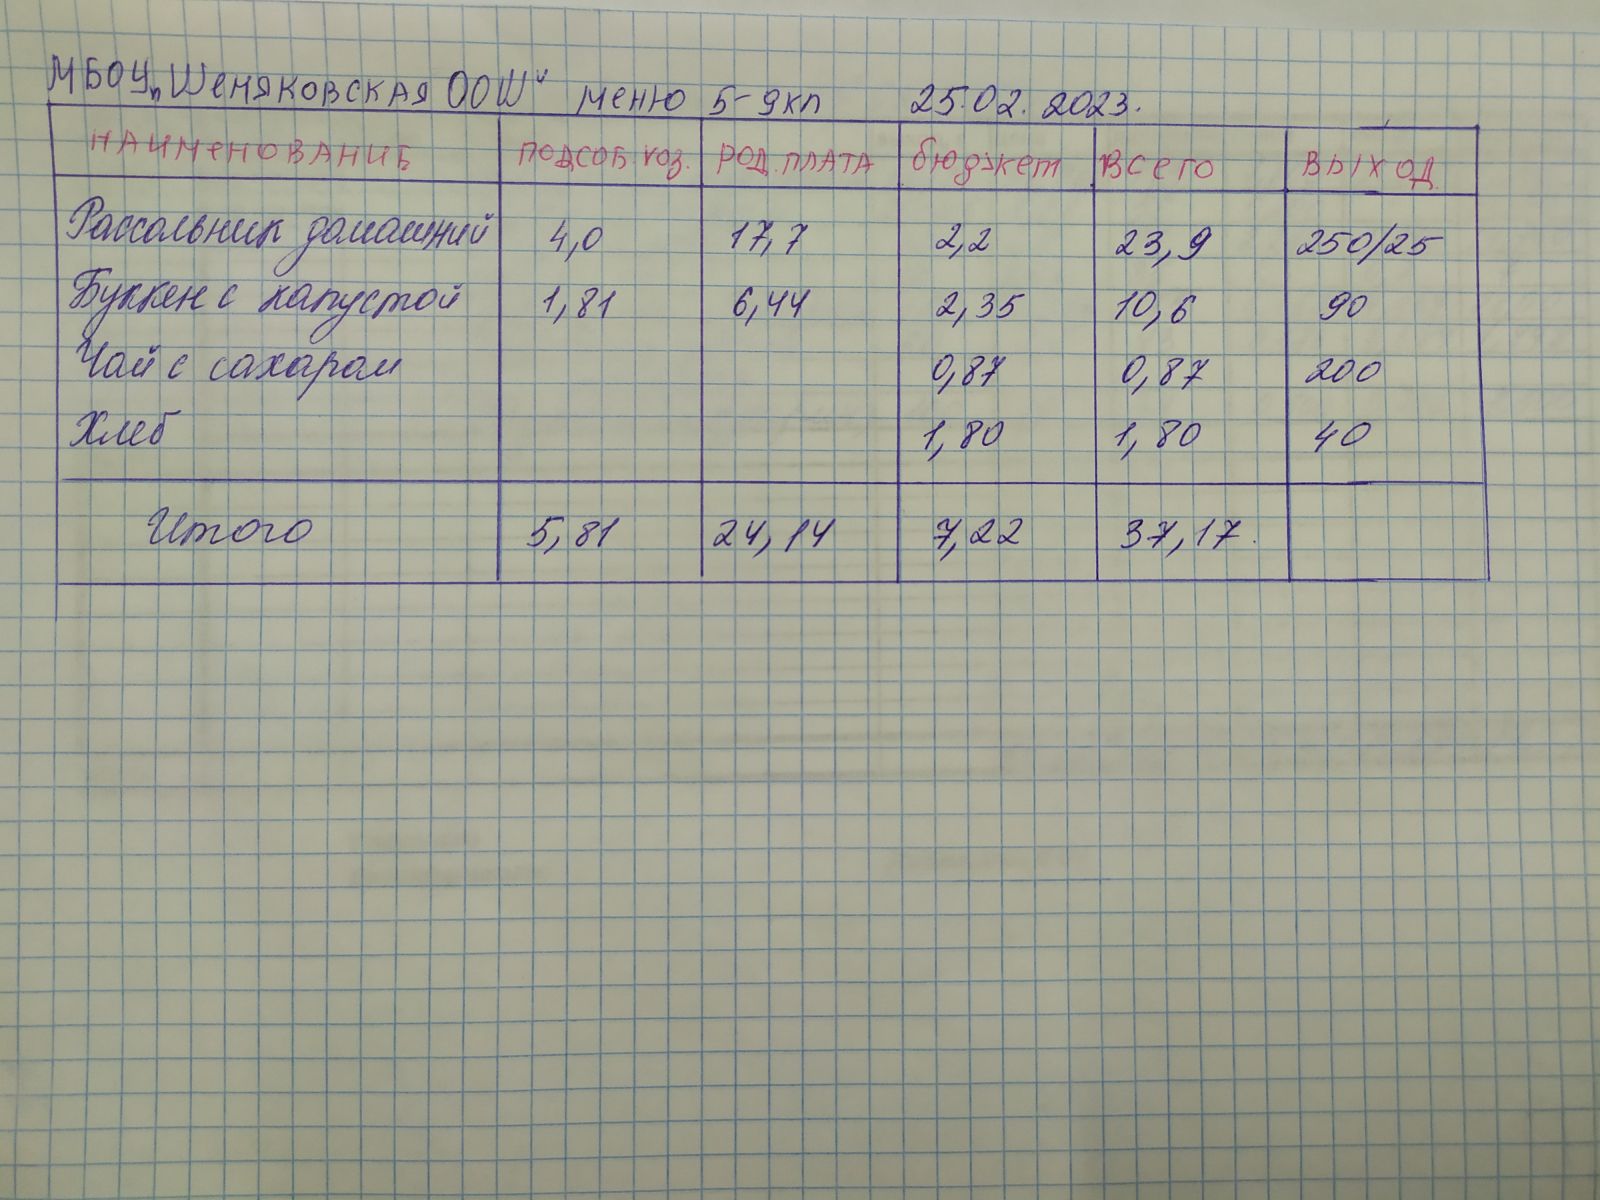 МБОУ „Шеняковская ООШ" меню 5-9кл 25.02.2023.
НАИМЕНОВАНИЕ ПОДСОБ.хоз. РОД.ПЛАТА бюджет ВСЕГО ВЫХОД.
Рассольник домашний 4,0 17,7 2,2 23,9 250/25
Буккен с капустой 1,81 6,44 2,35 10,6 90
Чай с сахаром 0,87 0,87 200
Хлеб 1,80 1,80 40
Итого 5,81 24,14 7,22 37,17.